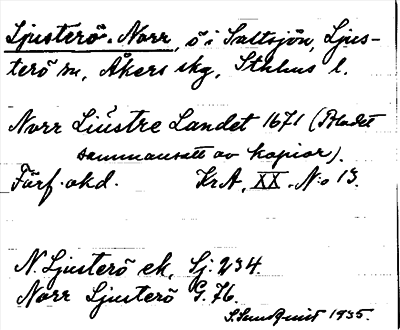 Ljusterö. Norr, ö i Saltsjön, Ljus-
terö sn, Åkers skg, Sthlms l.
Norr Liustre Landet 1671 (Bladet
sammansatt av kopior).
Förf. okd. KrA, XX. N:o 13.
N. Ljusterö ek. Sj. 234.
Norr Ljusterö G. 76.
S. Sundquist 1935.